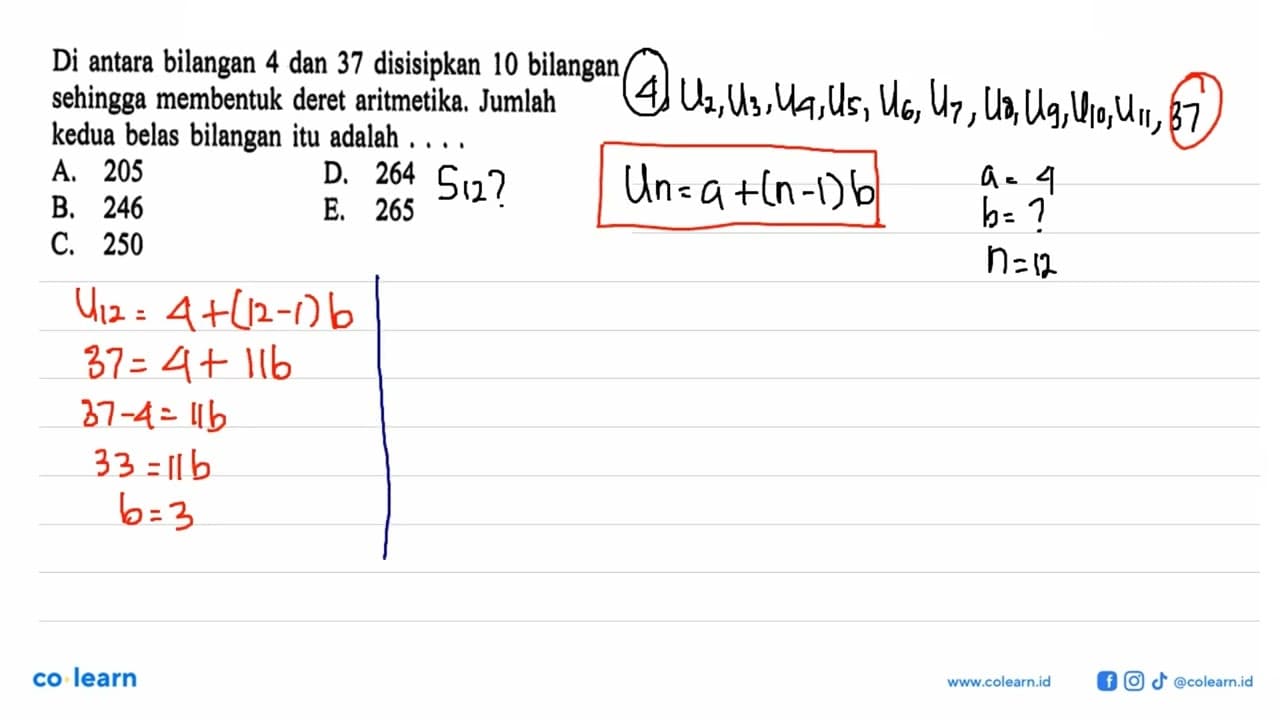 Di antara bilangan 4 dan 37 disisipkan 10 bilangan
sehingga membentuk deret aritmetika. Jumlah
kedua belas bilangan itu adalah . . . .
A. 205
B. 246
C. 250
D. 264
E. 265
S12?
4, U2, U3, U4, U5, U6, U7, U8, U9, U10, U11, 37
Un = a + (n-1) b
a = 4
b = ?
n = 12
U12 = 4 + (12-1) b
37 = 4 + 11b
37-4 = 11b
33 = 11b
b = 3
co learn
www.colearn.id
@colearn.id